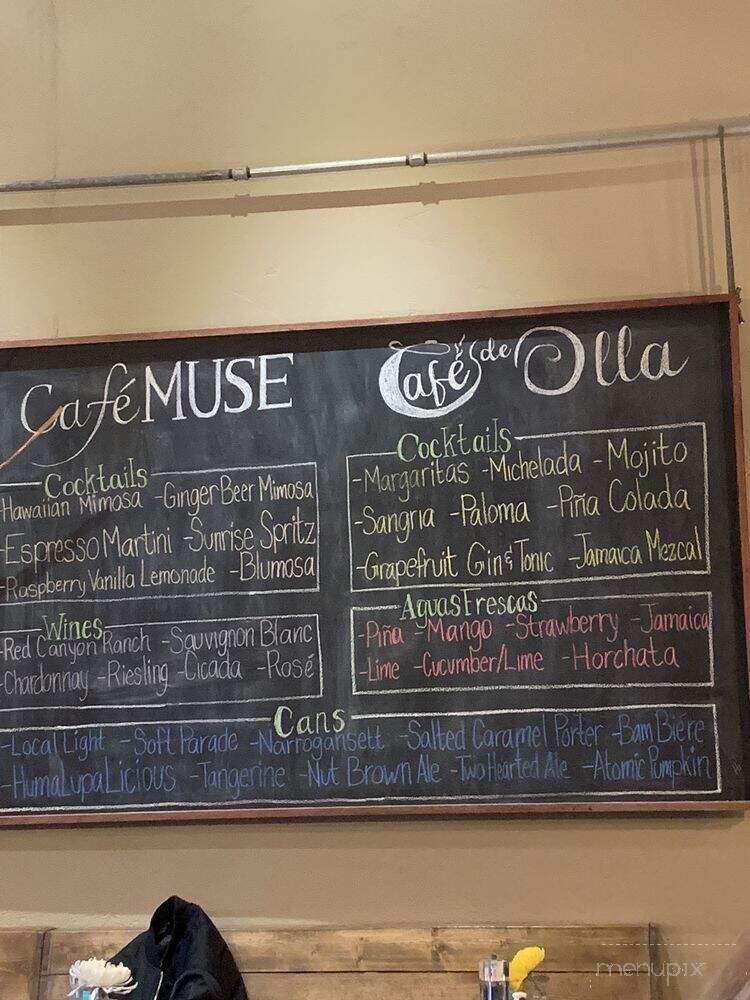 Café MUSE
Cocktails
-Hawaiian Mimosa -Ginger Beer Mimosa
-Espresso Martini -Sunrise Spritz
-Raspberry Vanilla Lemonade -Blumosa
Wines
-Red Canyon Ranch -Sauvignon Blanc
-Chardonnay -Riesling -Cicada -Rosé
Café de Olla
Cocktails
-Margaritas -Michelada -Mojito
-Sangria -Paloma -Piña Colada
-Grapefruit Gin & Tonic -Jamaica Mezcal
Aguas Frescas
-Piña -Mango -Strawberry -Jamaica
-Lime -Cucumber/Lime -Horchata
Cans
-Local Light -Soft Parade -Narragansett -Salted Caramel Porter -Bam Biére
-HumaLupaLicious -Tangerine -Nut Brown Ale -Two Hearted Ale -Atomic Pumpkin
menupix